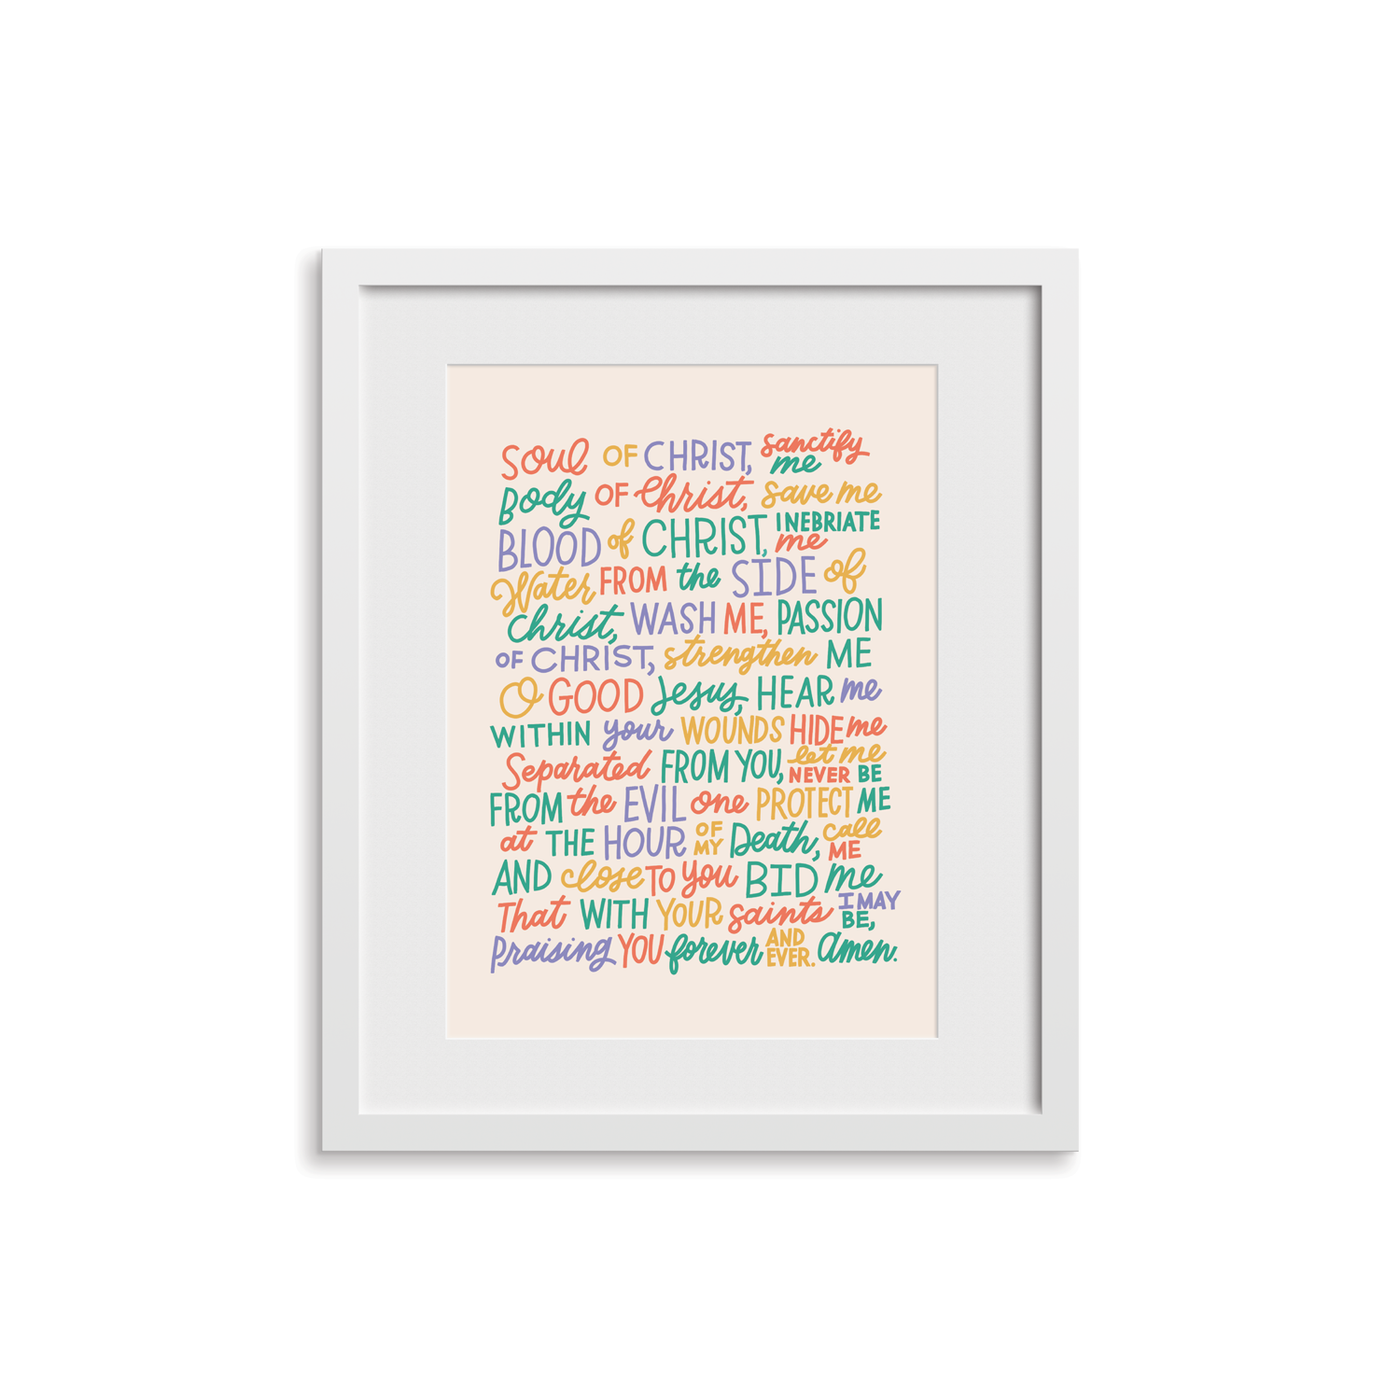 Soul OF CHRIST, sanctify me
Body OF Christ, save me
BLOOD of CHRIST, INEBRIATE me
Water FROM the SIDE of
Christ, WASH ME, PASSION
OF CHRIST, strengthen ME
O GOOD Jesus, HEAR me
WITHIN your WOUNDS HIDE me
Separated FROM YOU, let me NEVER BE
FROM the EVIL one PROTECT ME
at THE HOUR OF MY Death, call ME
AND close TO you BID me
That WITH YOUR saints I MAY BE,
Praising YOU forever AND EVER. Amen.